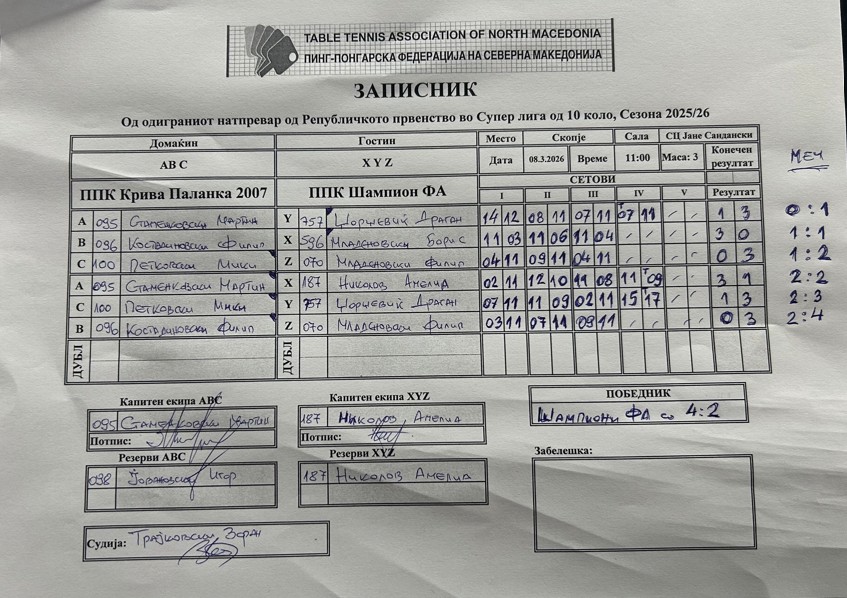 TABLE TENNIS ASSOCIATION OF NORTH MACEDONIA
ПИНГ-ПОНГАРСКА ФЕДЕРАЦИЈА НА СЕВЕРНА МАКЕДОНИЈА
ЗАПИСНИК
Од одиграниот натпревар од Републичкото првенство во Супер лига од 10 коло, Сезона 2025/26
Домаќин Гостин Место Скопје Сала СЦ Јане Сандански
A B C X Y Z Дата 08.3.2026 Време 11:00 Маса: 3 Конечен резултат
МЕЧ
СЕТОВИ
ППК Крива Паланка 2007 ППК Шампион ФА I II III IV V Резултат
A 095 Стаменковски Мартин Y 757 Ѓорѓевиќ Драган 14 12 08 11 07 11 07 11 / / 1 3 0:1
B 096 Костадиновски Филип X 596 Младеновски Борис 11 03 11 06 11 04 / / / / 3 0 1:1
C 100 Петковски Мики Z 070 Младеновски Филип 04 11 09 11 04 11 / / / / 0 3 1:2
A 095 Стаменковски Мартин X 187 Николов Амелиа 02 11 12 10 11 08 11 09 / / 3 1 2:2
C 100 Петковски Мики Y 757 Ѓорѓевиќ Драган 07 11 11 09 02 11 15 17 / / 1 3 2:3
B 096 Костадиновски Филип Z 070 Младеновски Филип 03 11 07 11 09 11 / / / / 0 3 2:4
ДУБЛ ДУБЛ
Капитен екипа ABC Капитен екипа XYZ ПОБЕДНИК
095 Стаменковски Мартин 187 Николов Амелиа Шампиони ФА со 4:2
Потпис: Потпис:
Резерви ABC Резерви XYZ Забелешка:
098 Јовановски Игор 187 Николов Амелиа
Судија: Трајковски Зоран